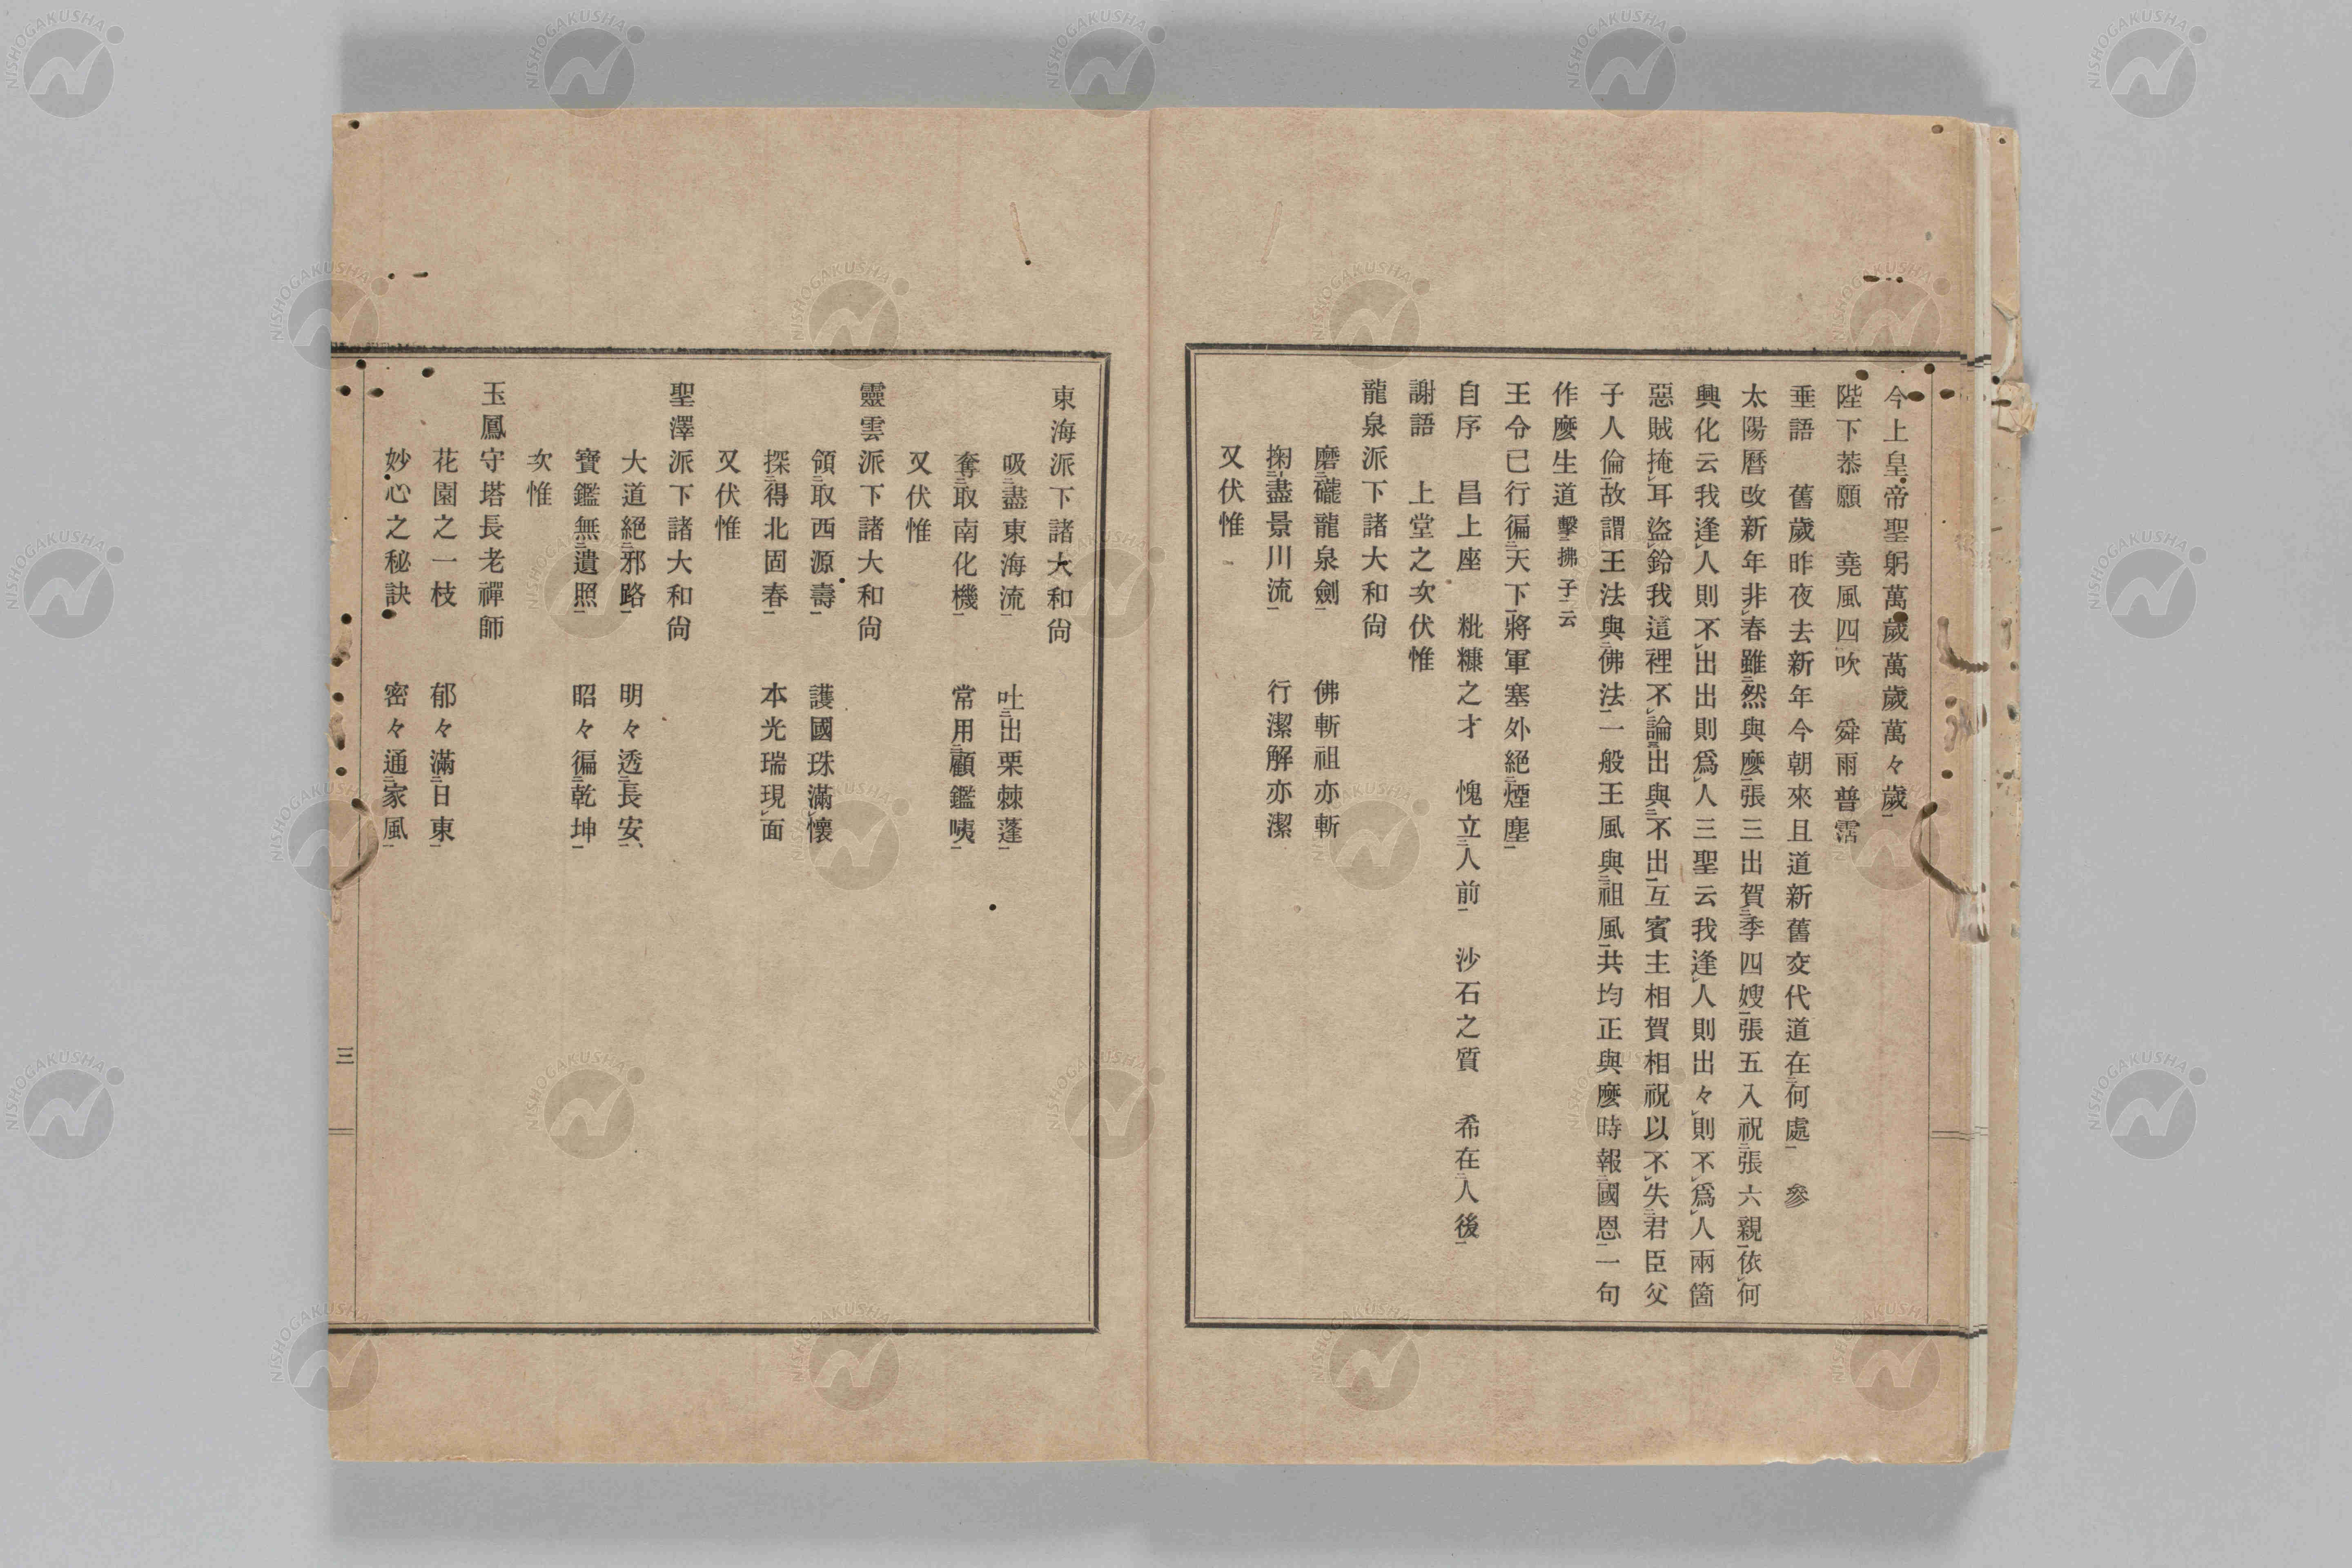 今上皇帝聖躬萬歲萬歲萬々歲
陛下恭願　堯風四吹　舜雨普霑
垂語　舊歲昨夜去新年今朝來且道新舊交代道在何處　參
太陽曆改新年非春雖然與麼張三出賀季四嫂張五入祝張六親依何
興化云我逢人則不出出則爲人三聖云我逢人則出々則不爲人兩箇
惡賊掩耳盜鈴我這裡不論出與不出互賓主相賀相祝以不失君臣父
子人倫故謂王法與佛法一般王風與祖風共均正與麼時報國恩一句
作麼生道擊拂子云
王令已行徧天下將軍塞外絕煙塵
自序　昌上座　粃糠之才　愧立人前　沙石之質　希在人後
謝語　上堂之次伏惟
龍泉派下諸大和尙
磨礲龍泉劍　佛斬祖亦斬
掬盡景川流　行潔解亦潔
又伏惟
東海派下諸大和尙
吸盡東海流　吐出栗棘蓬
奪取南化機　常用顧鑑咦
又伏惟
靈雲派下諸大和尙
領取西源壽　護國珠滿懷
探得北固春　本光瑞現面
又伏惟
聖澤派下諸大和尙
大道絕邪路　明々透長安
寶鑑無遺照　昭々徧乾坤
次惟
玉鳳守塔長老禪師
花園之一枝　郁々滿日東
妙心之秘訣　密々通家風
三
NISHOGAKUSHA